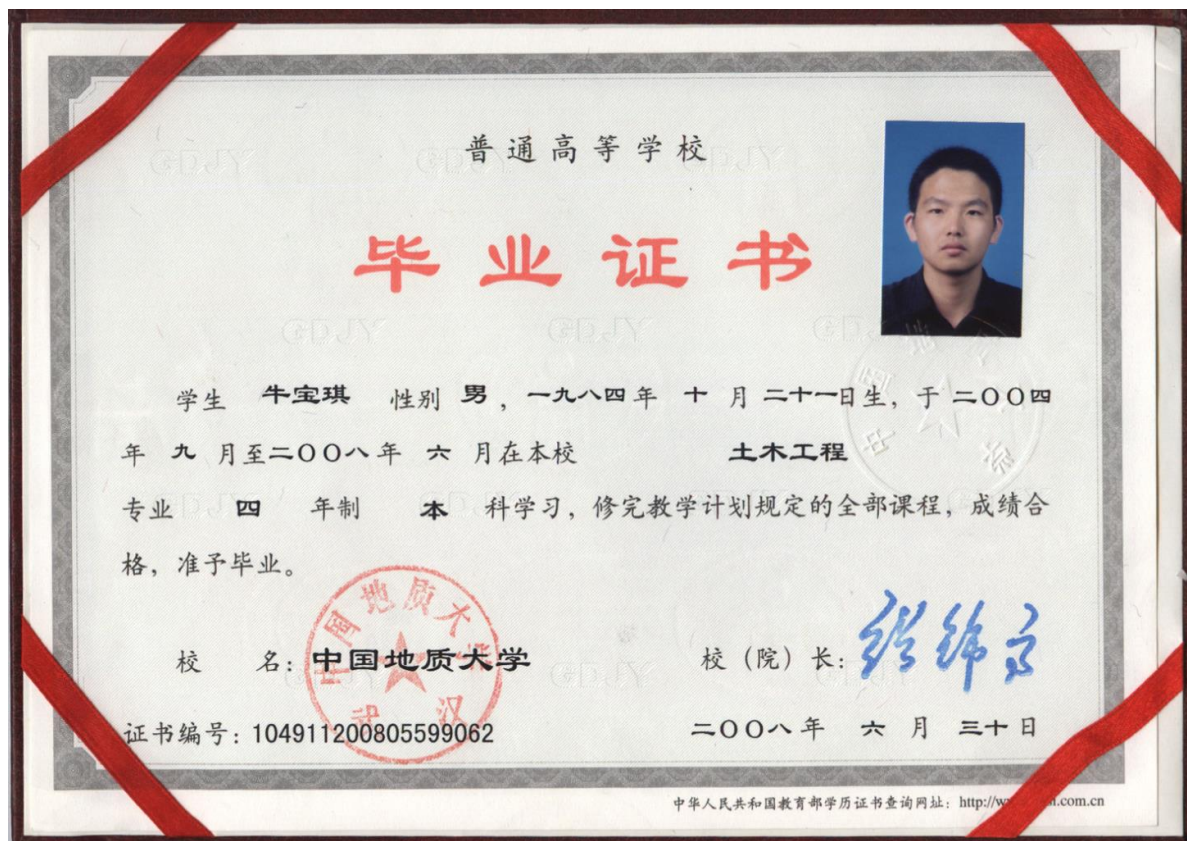 普通高等学校
毕业证书
学生 牛宝琪 性别 男，一九八四年 十 月 二十一日生，于 二〇〇四
年 九 月至二〇〇八年 六 月在本校 土木工程
专业 四 年制 本 科学习，修完教学计划规定的全部课程，成绩合
格，准予毕业。
中国地质大学
武汉
校 名：中国地质大学
校（院）长：
证书编号：104911200805599062
二〇〇八年 六 月 三十日
中华人民共和国教育部学历证书查询网址：http://w
.com.cn
GDJY